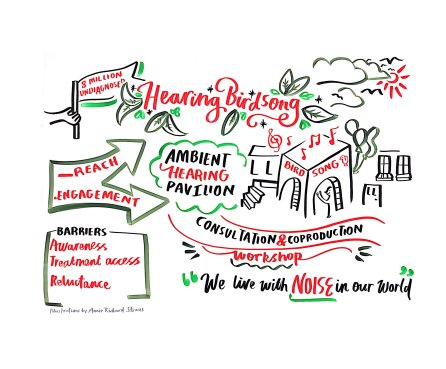 8 MILLION
UNDIAGNOSED
Hearing Birdsong
REACH
ENGAGEMENT
AMBIENT
HEARING
PAVILION
BIRD SONG
BARRIERS
Awareness
Treatment access
Reluctance
CONSULTATION & COPRODUCTION
Workshop
"We live with NOISE in our World"
Illustrations by